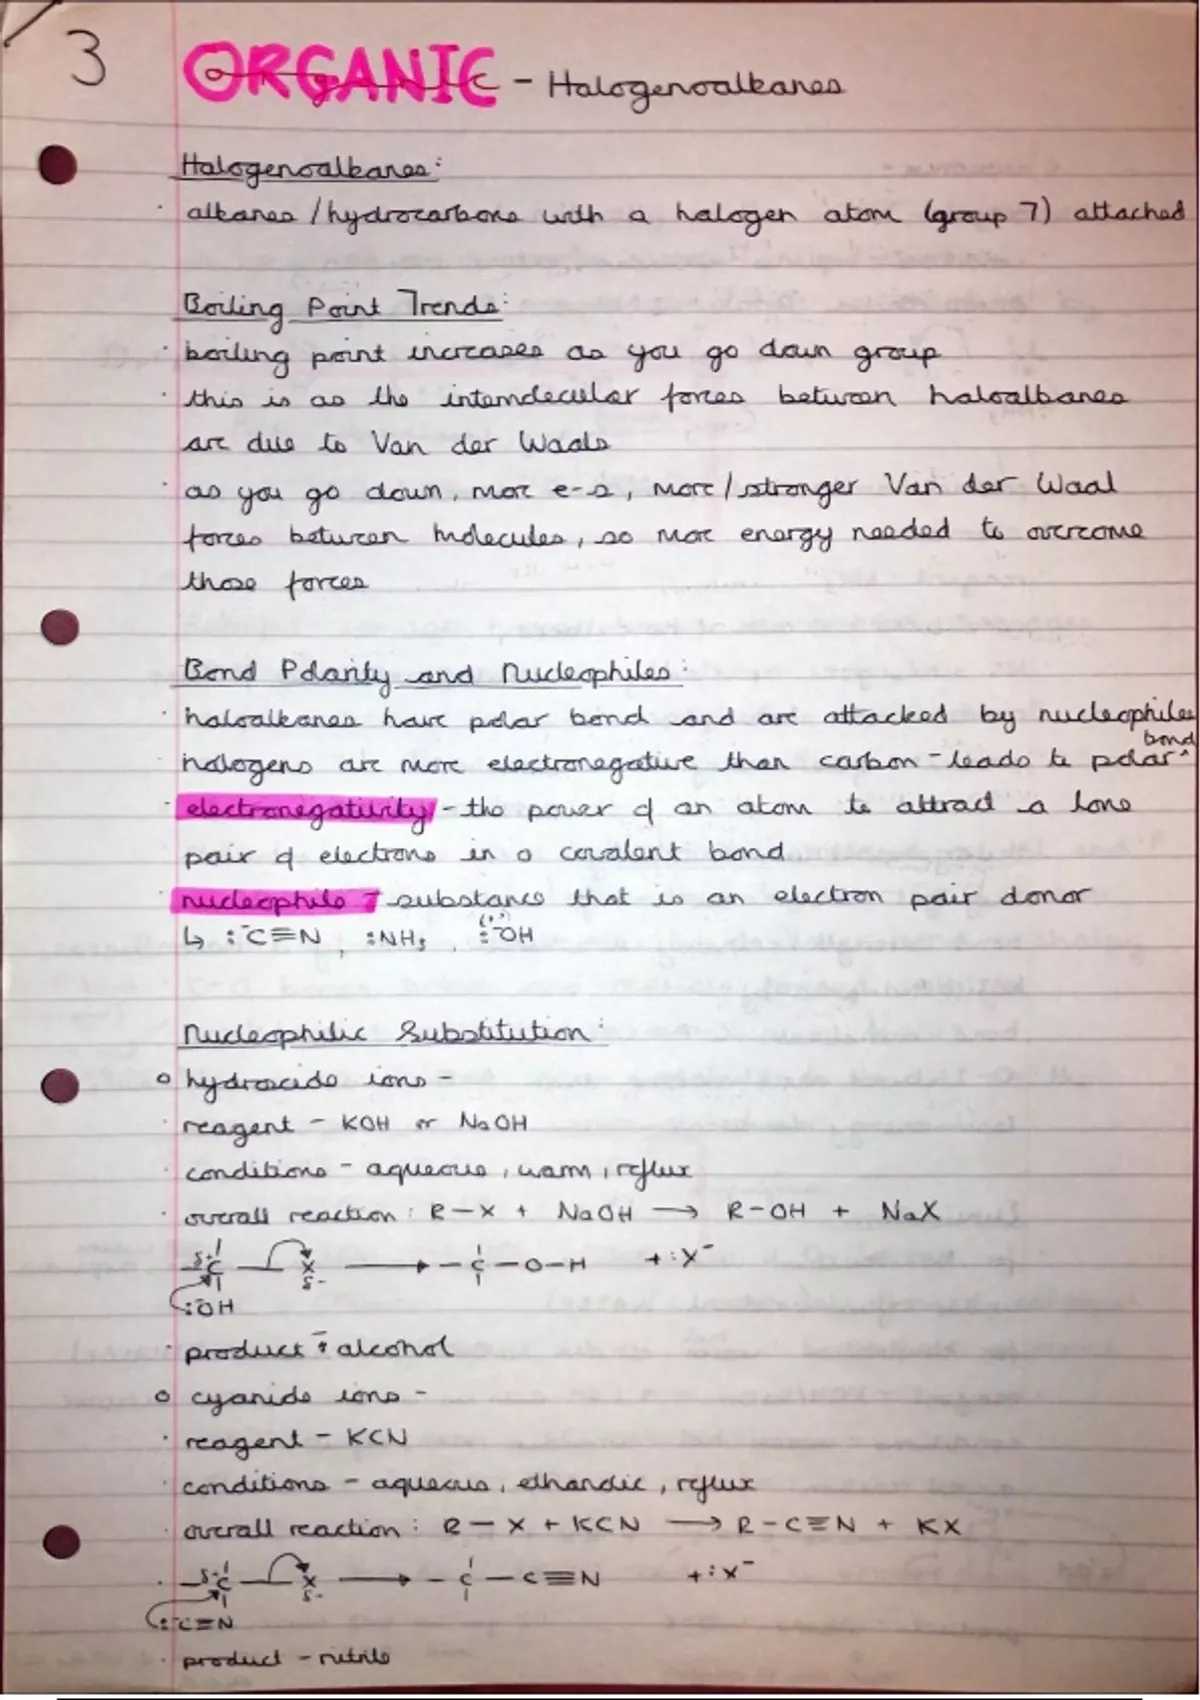 3
ORGANIC - Halogenoalkanes
Halogenoalkanes:
· alkanes / hydrocarbons with a halogen atom (group 7) attached
Boiling Point Trends:
· boiling point increases as you go down group
· this is as the intermolecular forces between haloalkanes
are due to Van der Waals
· as you go down, more e-s, more / stronger Van der Waal
forces between molecules, so more energy needed to overcome
those forces
Bond Polarity and Nucleophiles:
· haloalkanes have polar bond and are attacked by nucleophiles
· halogens are more electronegative than carbon - leads to polar ^ bond
· electronegativity - the power of an atom to attract a lone
pair of electrons in a covalent bond
· nucleophile - substance that is an electron pair donor
↳ :⁻C≡N, :NH₃, :⁻OH
Nucleophilic Substitution:
o hydroxide ions -
· reagent - KOH or NaOH
· conditions - aqueous, warm, reflux
· overall reaction: R-X + NaOH → R-OH + NaX
δ+ C — X δ- → - C - O - H + :X⁻
:⁻OH
· product - alcohol
o cyanide ions -
· reagent - KCN
· conditions - aqueous, ethanolic, reflux
· overall reaction: R-X + KCN → R-C≡N + KX
· δ+ C — X δ- → - C - C≡N + :X⁻
:⁻C≡N
· product - nitrile